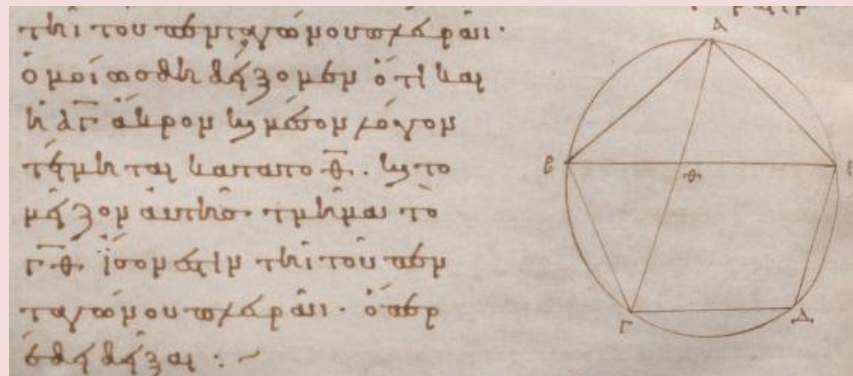 τῆι τοῦ πενταγώνου πλευρᾶι·
ὁμοίως δὴ δείξομεν ὅτι καὶ
ἡ ΑΓ ἄκρον καὶ μέσον λόγον
τέτμηται κατὰ τὸ Θ. καὶ τὸ
μεῖζον αὐτῆς τμῆμα τὸ
ΓΘ ἴσον ἐστὶν τῆι τοῦ πεν
ταγώνου πλευρᾶι· ὅπερ
ἔδει δεῖξαι :~
Α
Β
Ε
Θ
Γ
Δ